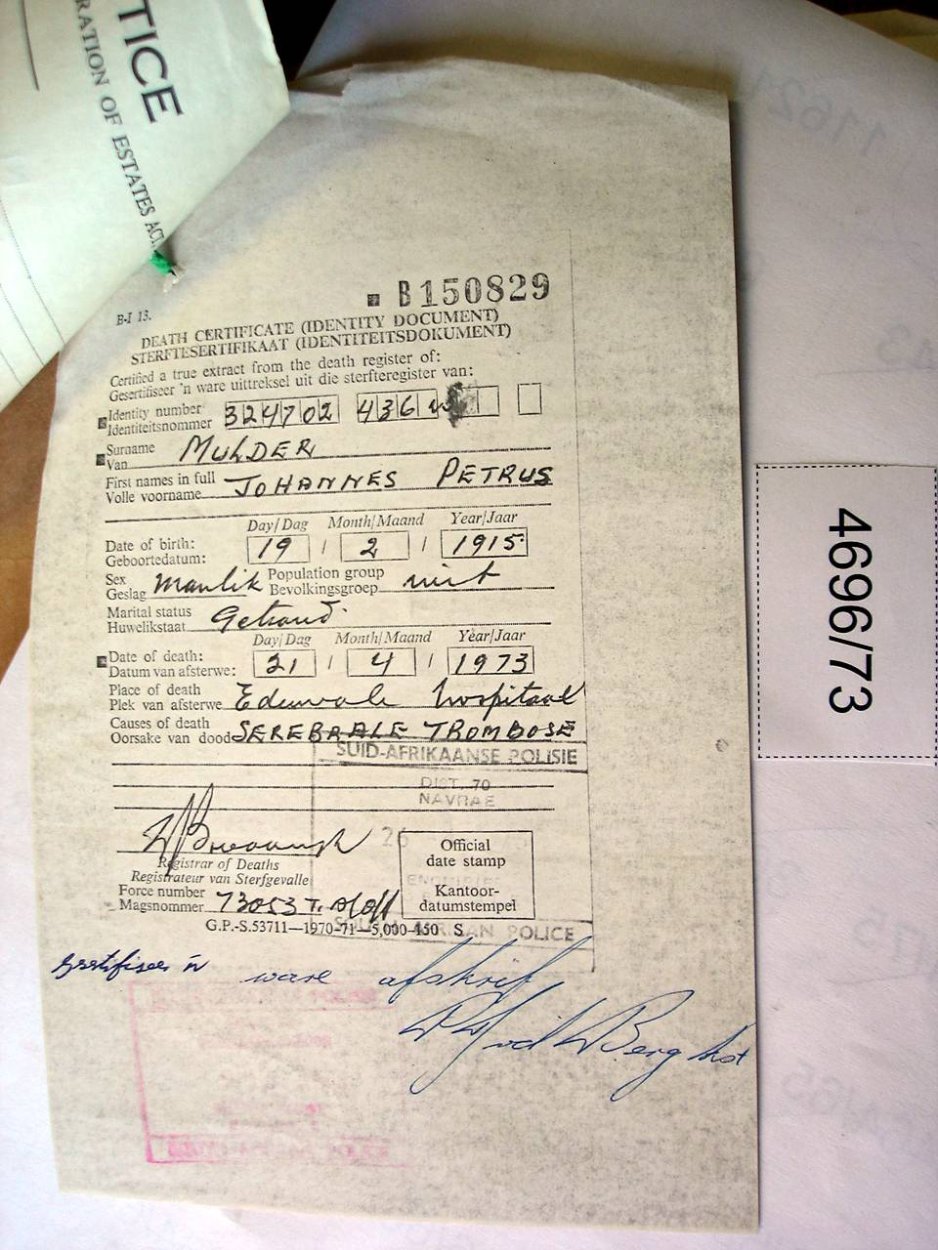 TICE
RATION OF ESTATES ACT,
B150829
B-I 13.
DEATH CERTIFICATE (IDENTITY DOCUMENT)
STERFTESERTIFIKAAT (IDENTITEITSDOKUMENT)
Certified a true extract from the death register of:
Gesertifiseer 'n ware uittreksel uit die sterfteregister van:
Identity number
Identiteitsnommer 324702 436 w
Surname
Van MULDER
First names in full
Volle voorname JOHANNES PETRUS
Day/Dag Month/Maand Year/Jaar
Date of birth:
Geboortedatum: 19 / 2 / 1915
Sex Population group
Geslag Manlik Bevolkingsgroep wit
Marital status
Huwelikstaat Getroud
Day/Dag Month/Maand Year/Jaar
Date of death:
Datum van afsterwe: 21 / 4 / 1973
Place of death
Plek van afsterwe Edenvale hospitaal
Causes of death
Oorsake van dood SEREBRALE TROMBOSE
SUID-AFRIKAANSE POLISIE
DIST. 70
NAVRAE
26
Official
date stamp
Registrar of Deaths
Registrateur van Sterfgevalle
Kantoor-
datumstempel
Force number
Magsnommer 73053 T.
G.P.-S.53711—1970-71—5,000-150 S
SOUTH AFRICAN POLICE
Gesertifiseer 'n ware afskrif
4696/73